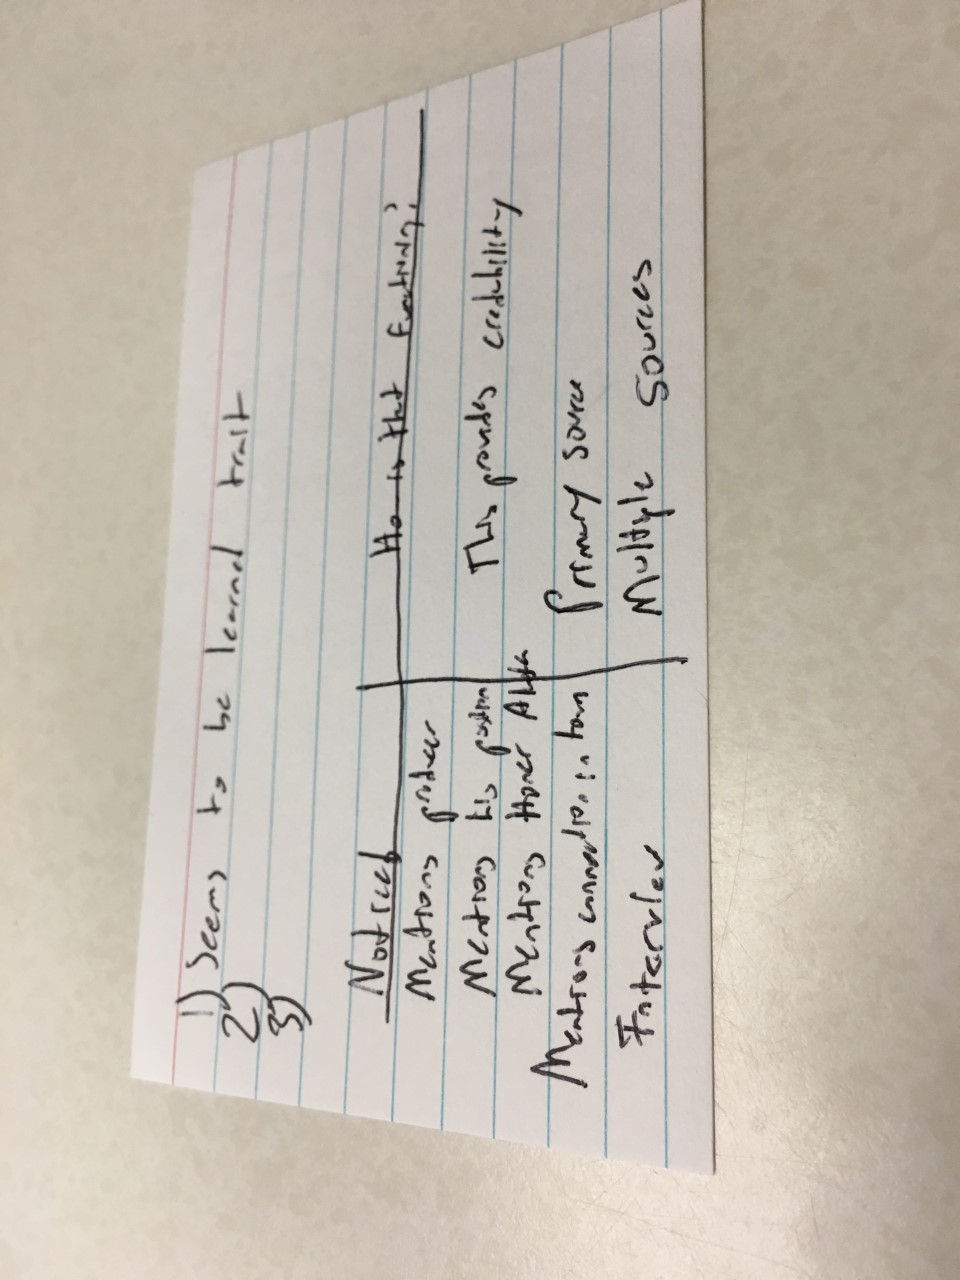 1) Seems to be learned trait
2)
3)
Notices How is that functioning?
Mentions producer
Mentions his position This provides credibility
Mentions Homer
Mentions connection in town Primary source
Interview Multiple sources